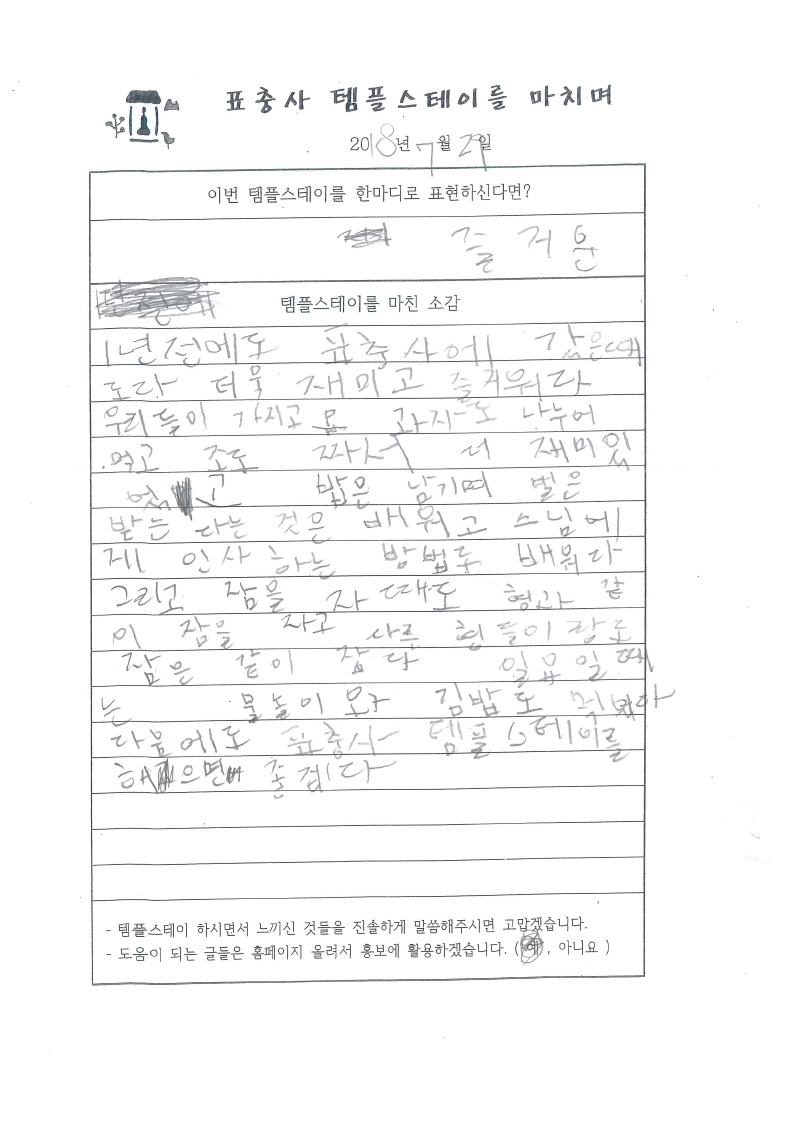 표충사 템플스테이를 마치며
2018년 7월 29일
이번 템플스테이를 한마디로 표현하신다면?
즐거운
템플스테이를 마친 소감
1년전에도 표충사에 갔은때
도다 더욱 재미고 즐거워다
우리들이 가지고 온 과자도 나누어
먹고 조도 짜서 더 재미있
었고 밥은 남기며 벌은
받는 다는 것은 배워고 스님에
제 인사하는 방법도 배워다
그리고 잠을 자 때도 형과 같
이 잠을 자고 다른 형들이랑도
잠은 같이 잤다 일요일때
는 물놀이 오고 김밥도 먹었다
다음에도 표충사 템플스테이를
해으면 좋겠다
- 템플스테이 하시면서 느끼신 것들을 진솔하게 말씀해주시면 고맙겠습니다.
- 도움이 되는 글들은 홈페이지 올려서 홍보에 활용하겠습니다. (예, 아니요 )